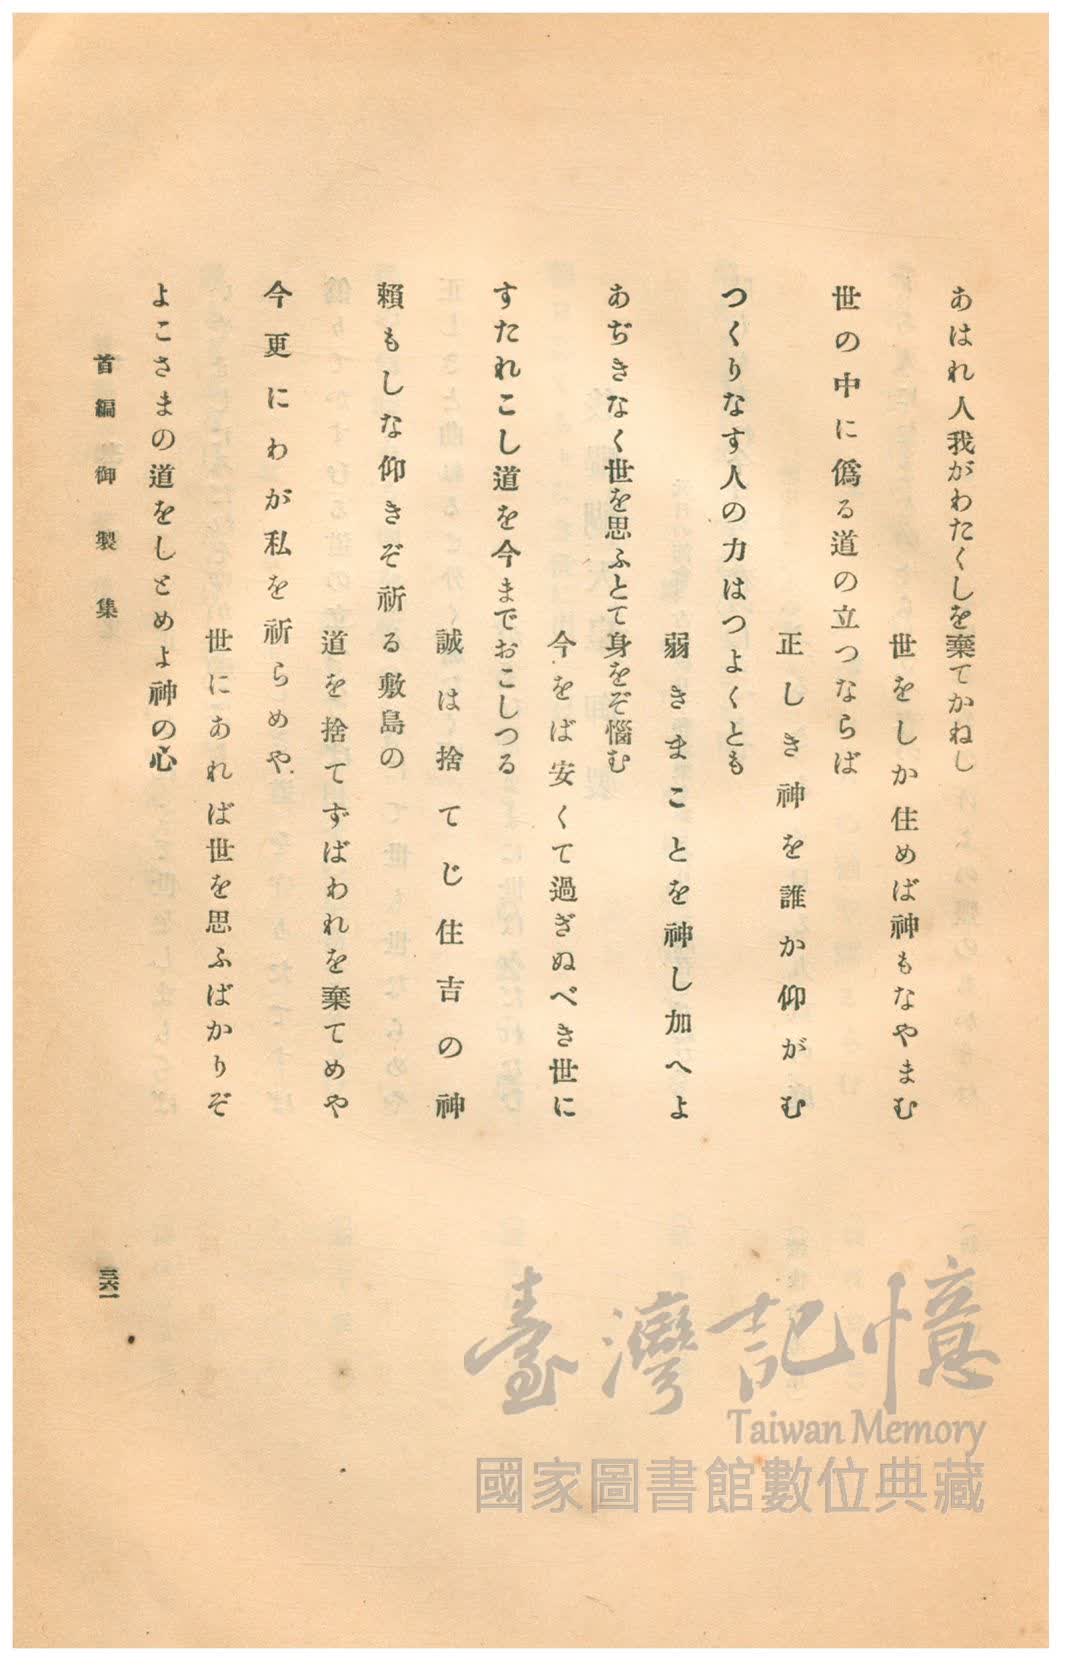 あはれ人我がわたくしを棄てかねし
世をしか住めば神もなやまむ
世の中に僞る道の立つならば
正しき神を誰か仰がむ
つくりなす人の力はつよくとも
弱きまことを神し加へよ
あぢきなく世を思ふとて身をぞ惱む
今をば安くて過ぎぬべき世に
すたれこし道を今までおこしつる
誠は捨てじ住吉の神
賴もしな仰きぞ祈る敷島の
道を捨てずばわれを棄てめや
今更にわが私を祈らめや
世にあれば世を思ふばかりぞ
よこさまの道をしとめよ神の心
首編 御製集
三六一
臺灣記憶
Taiwan Memory
國家圖書館數位典藏